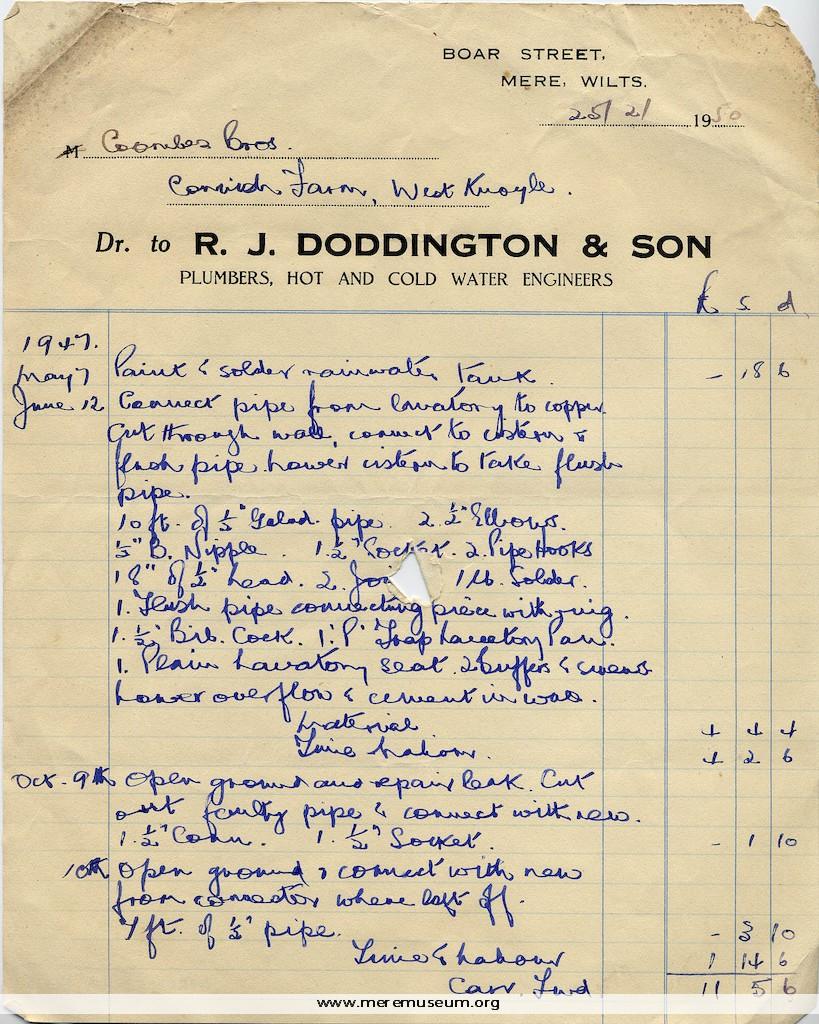 BOAR STREET,
MERE, WILTS.
25/ 2/ 1950
M Coombes Bros.
Cornish Farm, West Knoyle.
Dr. to R. J. DODDINGTON & SON
PLUMBERS, HOT AND COLD WATER ENGINEERS
£ s. d.
1947.
May 7 Paint & solder rainwater tank. - 18 6
June 12 Connect pipe from lavatory to copper.
Cut through wall, connect to cistern &
flush pipe. Lower cistern to take flush
pipe.
10 ft. of ½" Galvd. pipe. 2 ½" Elbows.
½" B. Nipple. 1 ½" Socket. 2 Pipe Hooks
18" of ½" Lead. 2 1 lb. Solder.
1. Flush pipe connecting piece with ring.
1. ½" Bib. Cock. 1 'P' Trap Lavatory Pan.
1. Plain Lavatory seat. 2 buffers & screws
Lower overflow & cement in wall.
Material 4 4 4
Time Labour. 4 2 6
Oct. 9th Open ground and repair leak. Cut
out faulty pipe & connect with new.
1 ½" Conn. 1. ½" Socket. - 1 10
10th Open ground & connect with new
from connector where left off.
7 ft. of ½" pipe. - 3 10
Time & Labour 1 14 6
Carr. Fwd 11 5 6
www.meremuseum.org